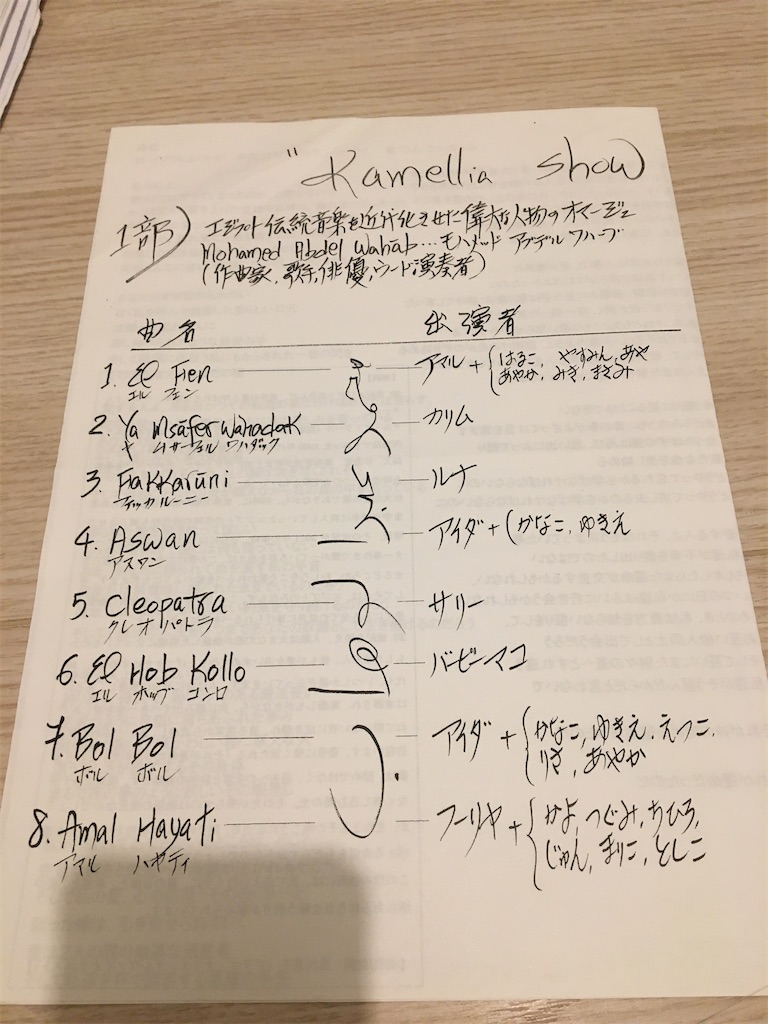 "Kamellia show
1部) エジプト伝統音楽を近代化させた偉大な人物のオマージュ
Mohamed Abdel Wahab...モハメッド アブデル ワハーブ
(作曲家, 歌手, 俳優, ウード演奏者)
曲名 出演者
1. El Fen アマル + { はるこ, やすみん, あや
エル フェン あやか, みき, まさみ
2. Ya Msāfer Wahadak カリム
ヤ ムサーフェル ワハダック
3. Fakkarūni ルナ
ファッカルーニー
4. Aswan アイダ + ( かなこ, ゆきえ
アスワン
5. Cleopatra サリー
クレオパトラ
6. El Hob Kollo バービーマコ
エル ホッブ コンロ
7. Bol Bol アイダ + { かなこ, ゆきえ, えつこ,
ボル ボル りさ, あやか
8. Amal Hayati フーリヤ + { かよ, つぐみ, ちひろ,
アマル ハヤティ じゅん, まりこ, としこ